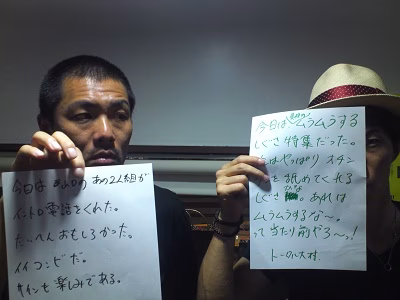 今日は あの2人組が
イントロ電話をくれた。
たいへんおもしろかった。
イイコンビだ。
も楽しみである。
今日は、ムラムラする
しぐさ特集だった。
はやっぱり スタン
を 舐めてくれる
しぐさ かな あれは
ムラムラするな〜。
って当たり前やろ〜っ!